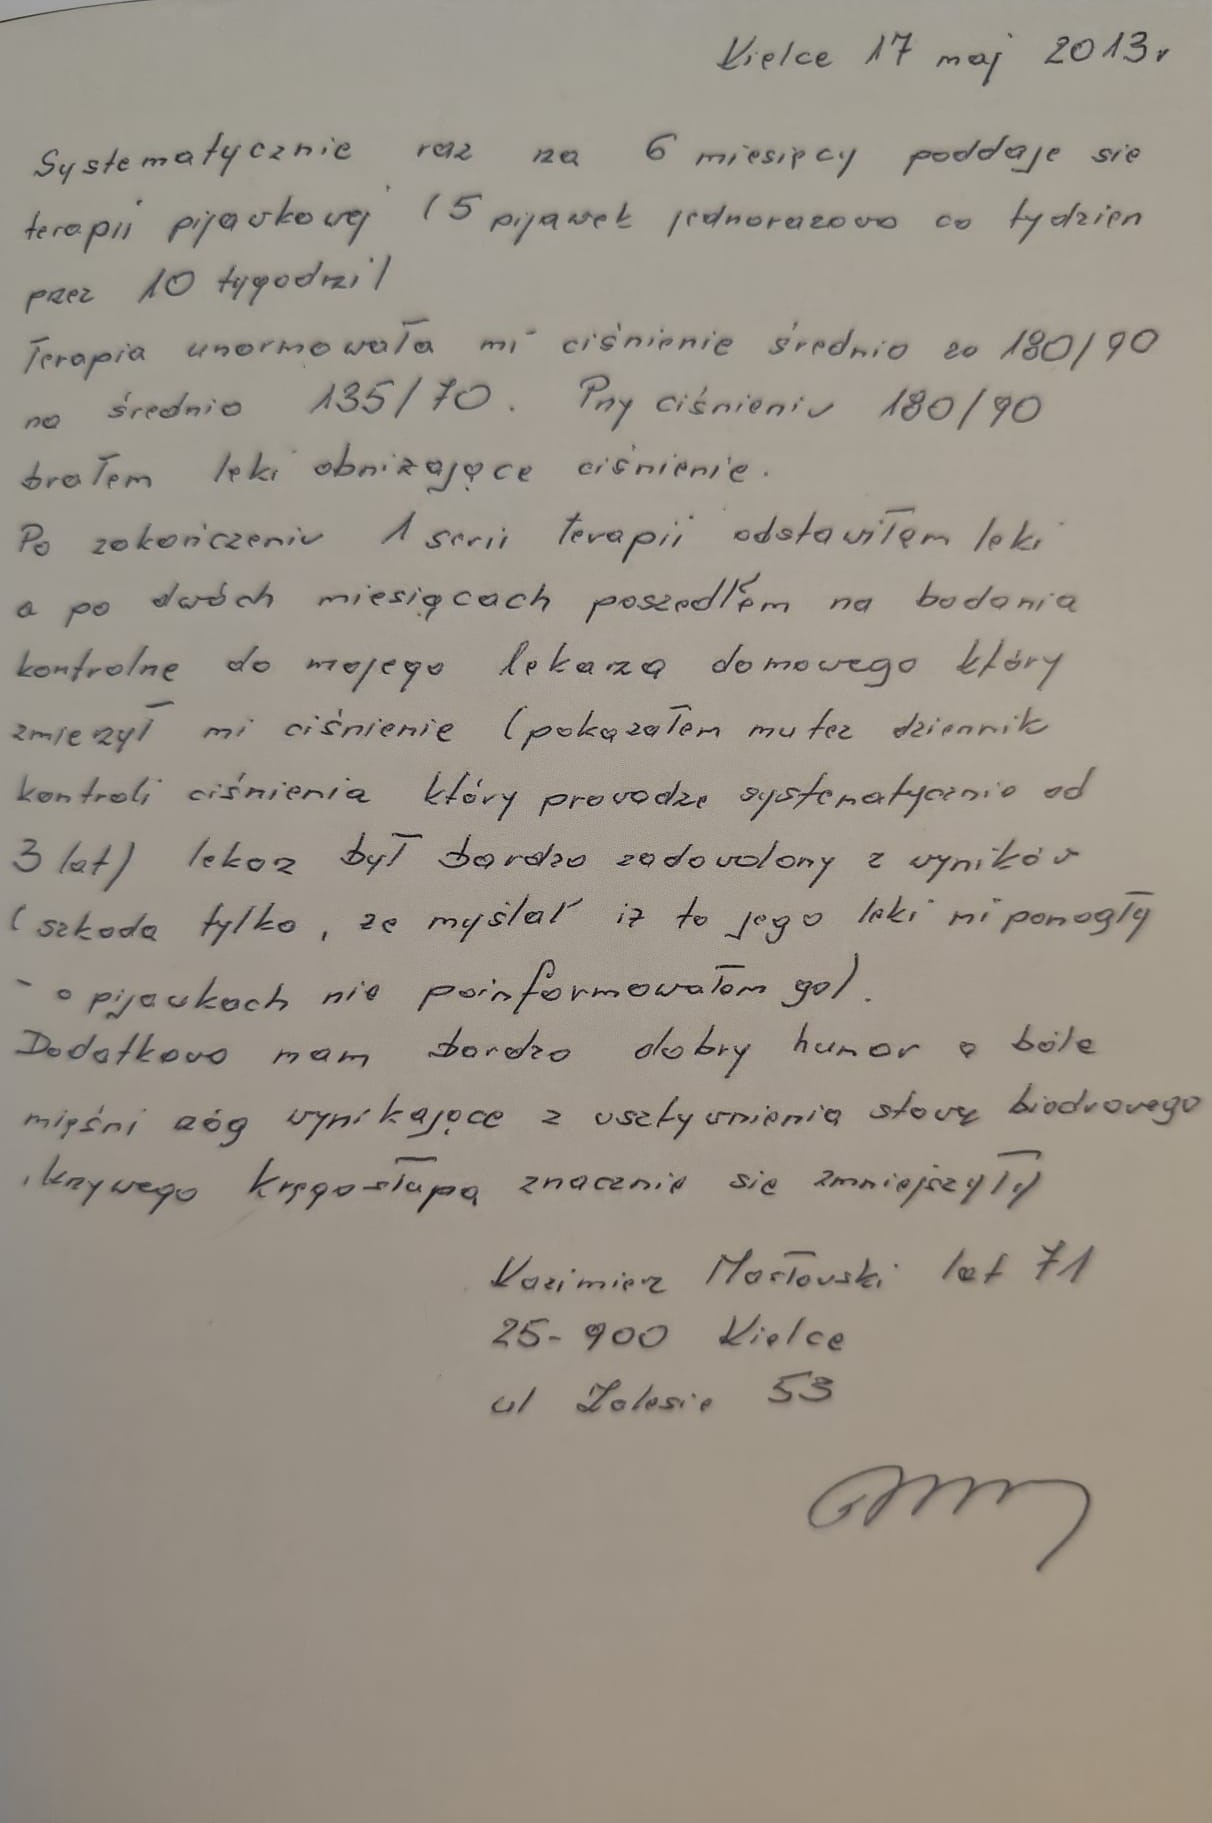 Kielce 17 maj 2013r
Systematycznie raz na 6 miesięcy poddaje sie
terapii pijawkowej (5 pijawek jednorazowo co tydzien
przez 10 tygodni)
Terapia unormowała mi ciśnienie średnio ze 180/90
na średnio 135/70. Przy ciśnieniu 180/90
brałem leki obniżające ciśnienie.
Po zakończeniu 1 serii terapii odstawiłem leki
a po dwóch miesiącach poszedłem na badania
kontrolne do mojego lekarza domowego który
zmierzył mi ciśnienie (pokazałem mu tez dziennik
kontroli ciśnienia który prowadze systematycznie od
3 lat) lekarz był bardzo zadowolony z wyników
(szkoda tylko, ze myślał iz to jego leki mi pomogły
- o pijawkach nie poinformowałem go).
Dodatkowo mam bardzo dobry humor a bóle
mięśni nóg wynikające z usztywnienia stawu biodrowego
i krzywego kręgosłupa znacznie się zmniejszyły
Kazimierz Masłowski lat 71
25-900 Kielce
ul Zalesie 53